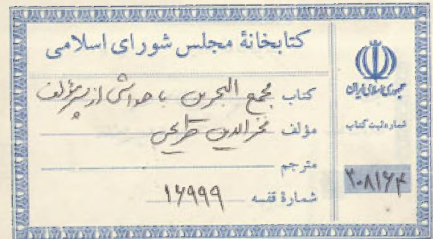 کتابخانهٔ مجلس شورای اسلامی
کتاب مجمع البحرین با حواشی از پسر مؤلف
مؤلف فخرالدین طریحی
مترجم
شمارهٔ قفسه ۱۶۹۹۹
جمهوری اسلامی ایران
شماره ثبت کتاب
۲۰۸۱۶۴